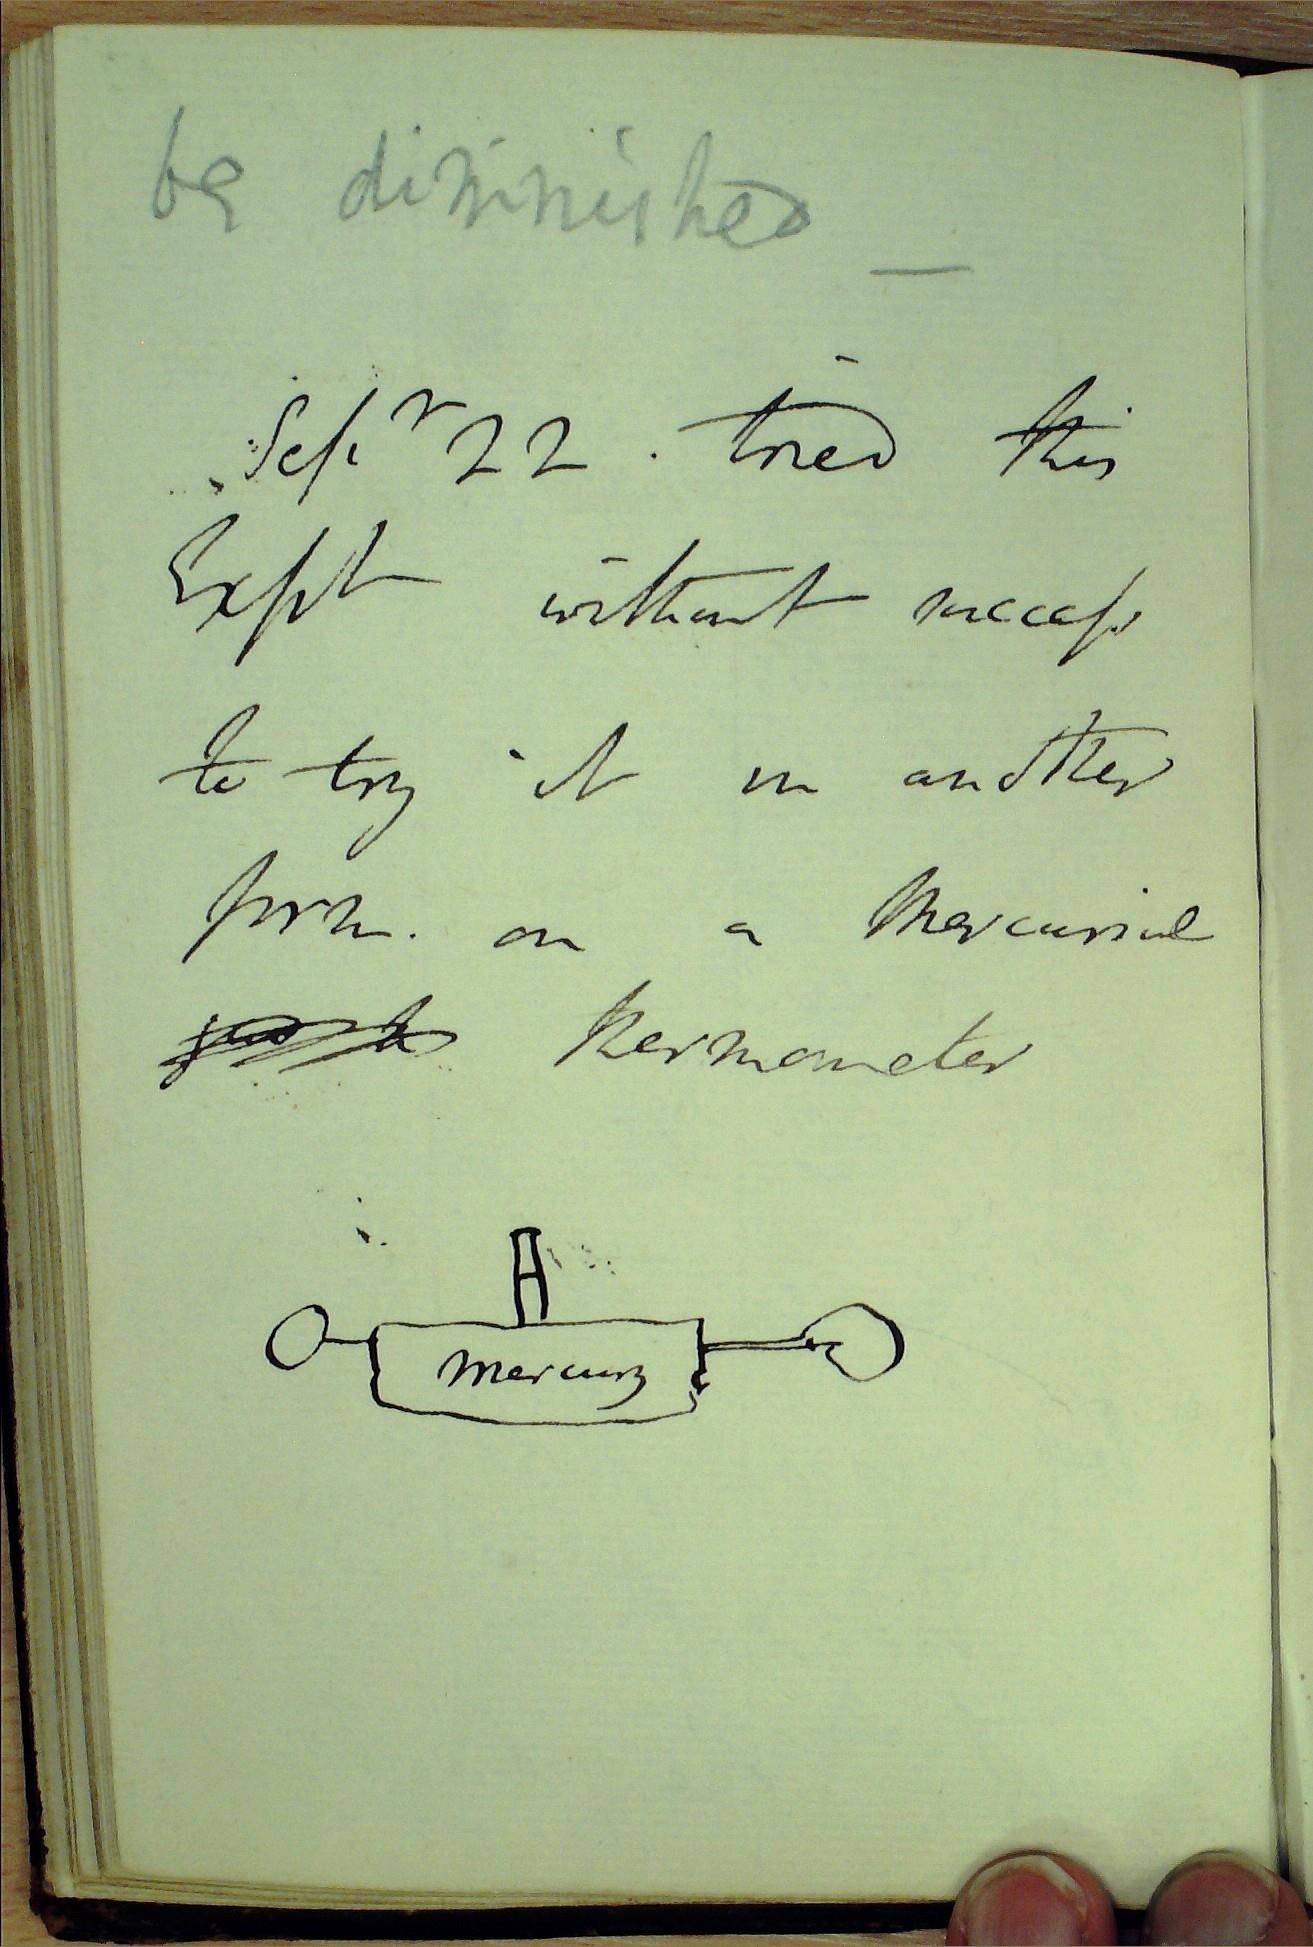 be diminished _
Sepr 22. tried this
Expt without success
to try it in another
form. on a Mercurial
thermometer
Mercury